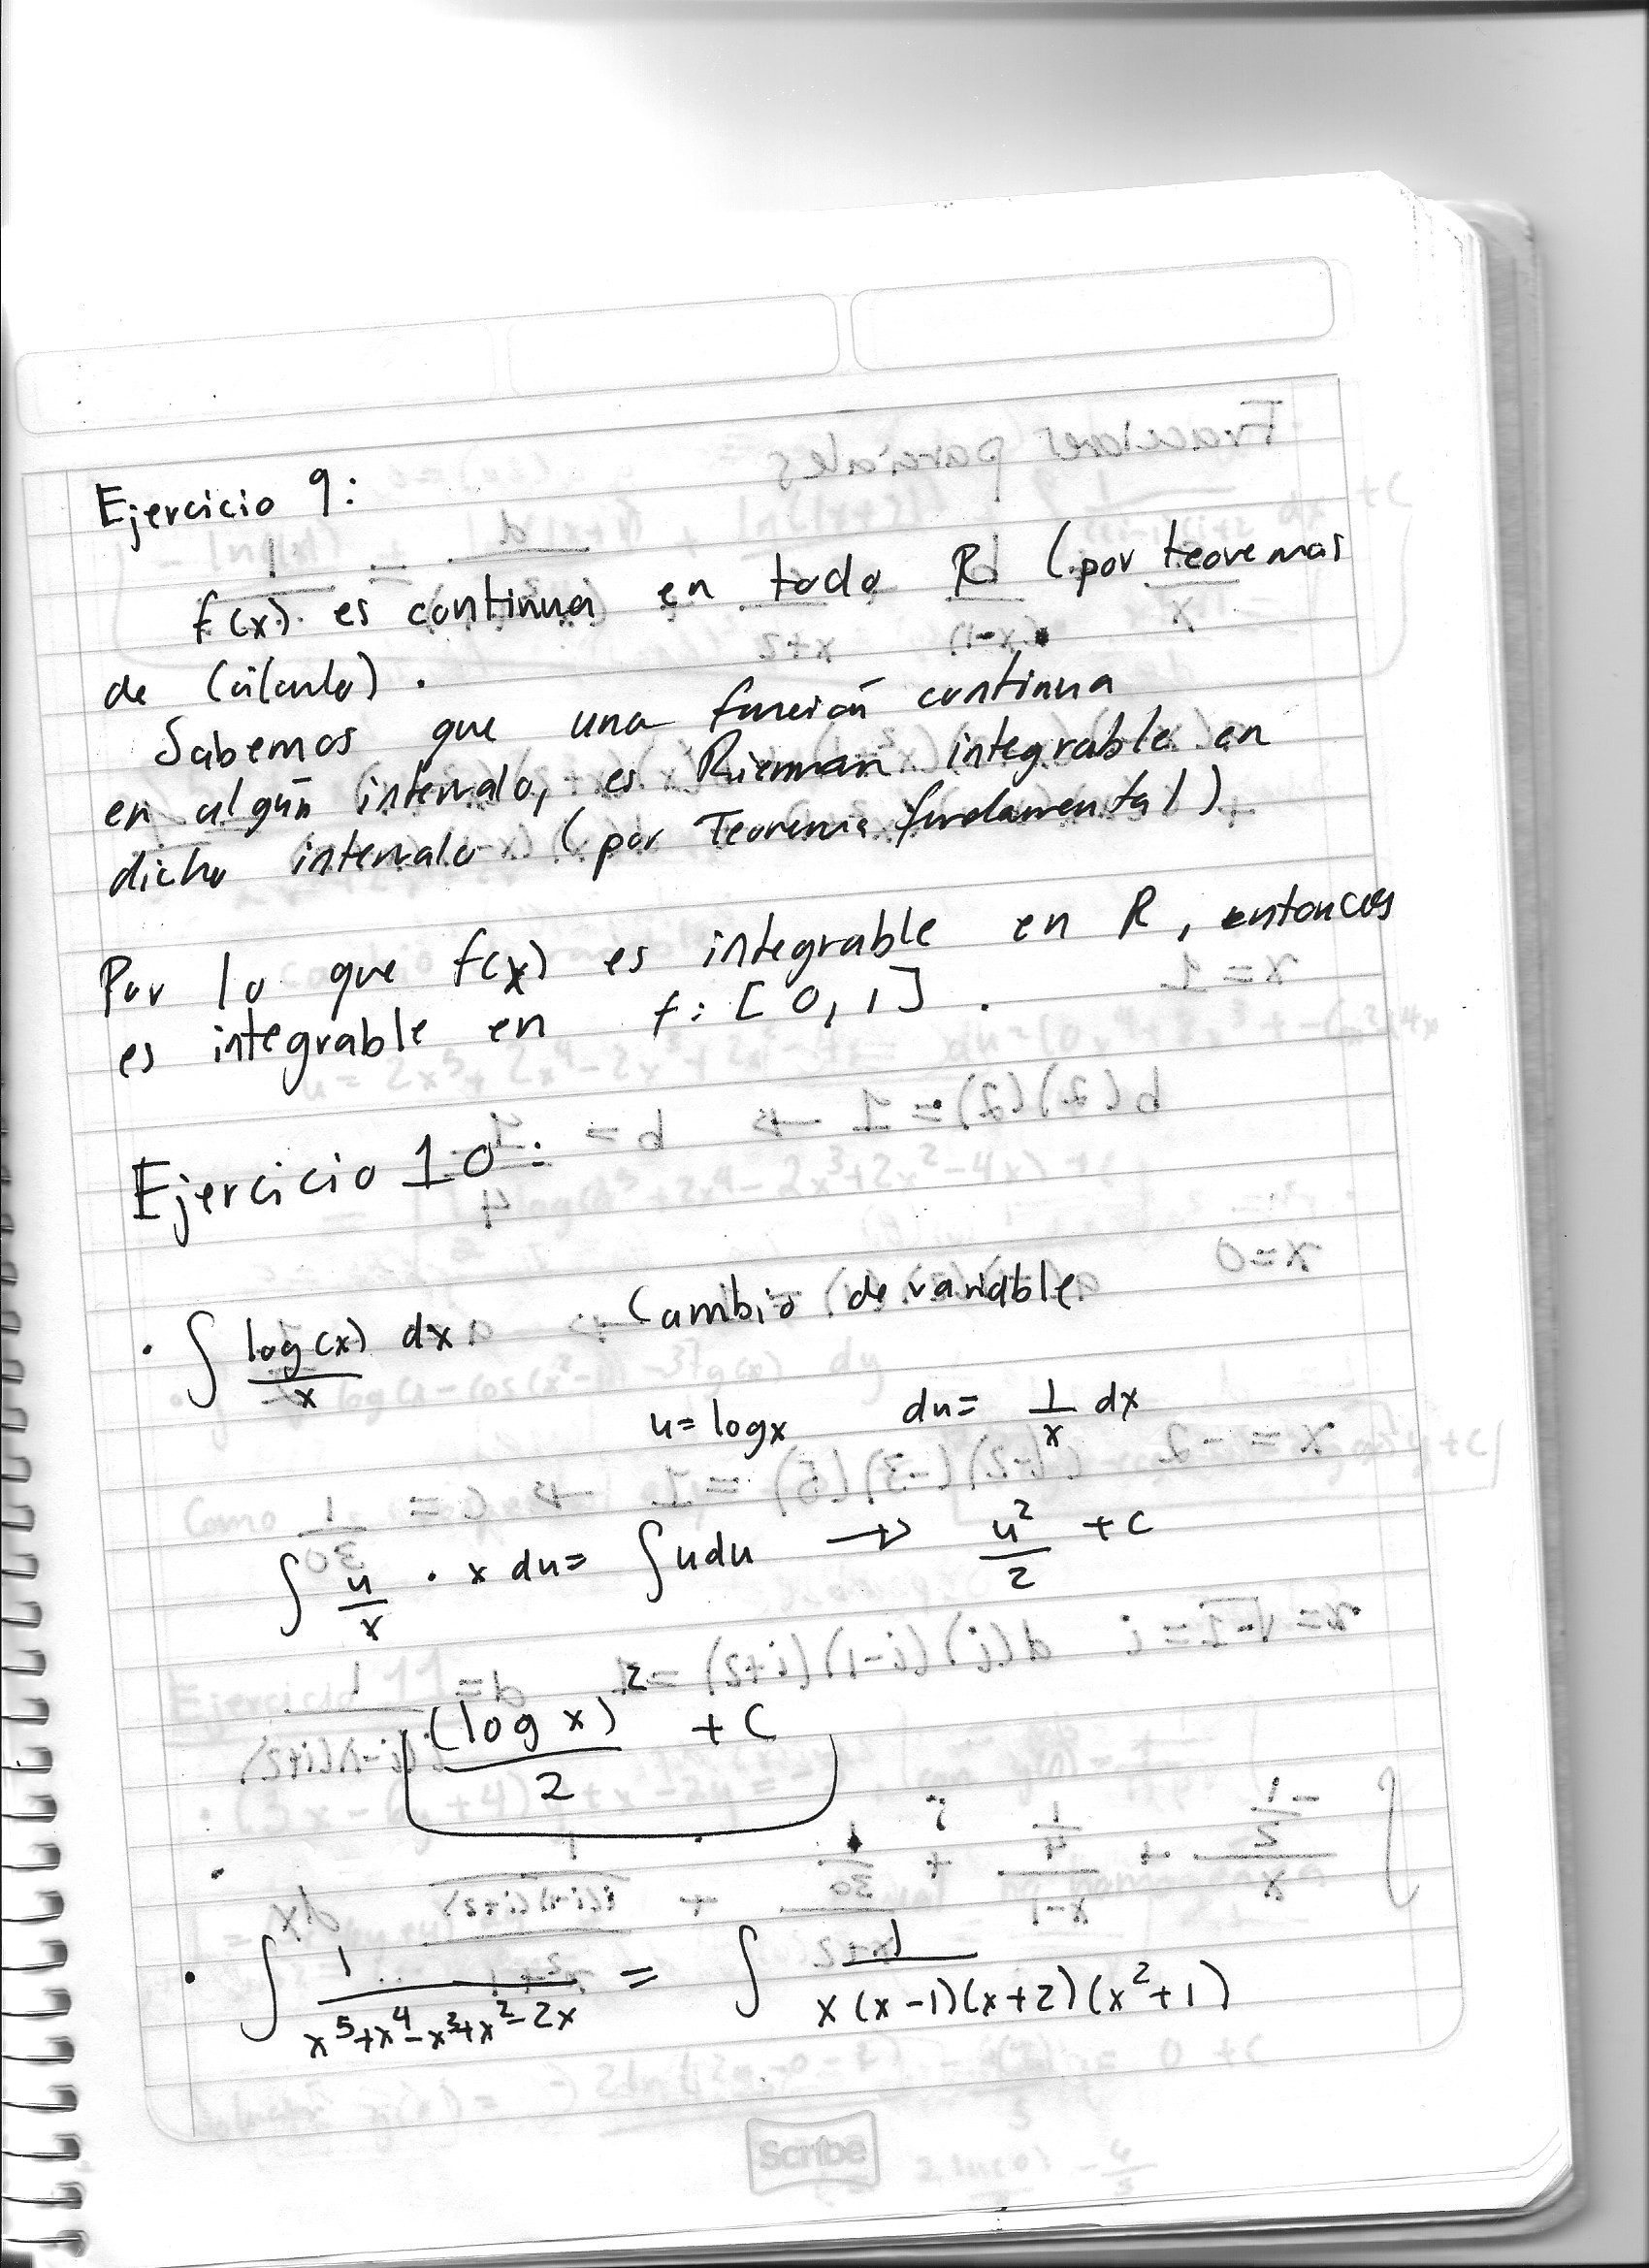 Ejercicio 9:
f(x) es continua en todo R (por teoremas
de Cálculo).
Sabemos que una función continua
en algún intervalo, es Rieman integrable en
dicho intervalo (por Teorema fundamental)
Por lo que f(x) es integrable en R, entonces
es integrable en f: [0,1].
Ejercicio 10:
· ∫ log(x)/x dx Cambio de variable
u = logx du = 1/x dx
∫ u/x · x du = ∫ u du → u²/2 + C
(log x)²/2 + C
· ∫ 1/(x⁵+x⁴-x³+x²-2x) = ∫ 1/(x(x-1)(x+2)(x²+1))
Scribe